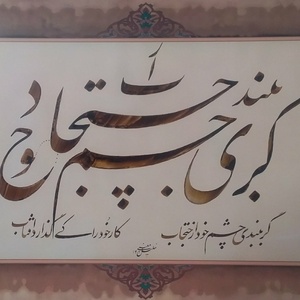 گر ببندی چشم خود از احتجاب
گر ببندی چشم خود از احتجاب کار خود را کی گذارد آفتاب